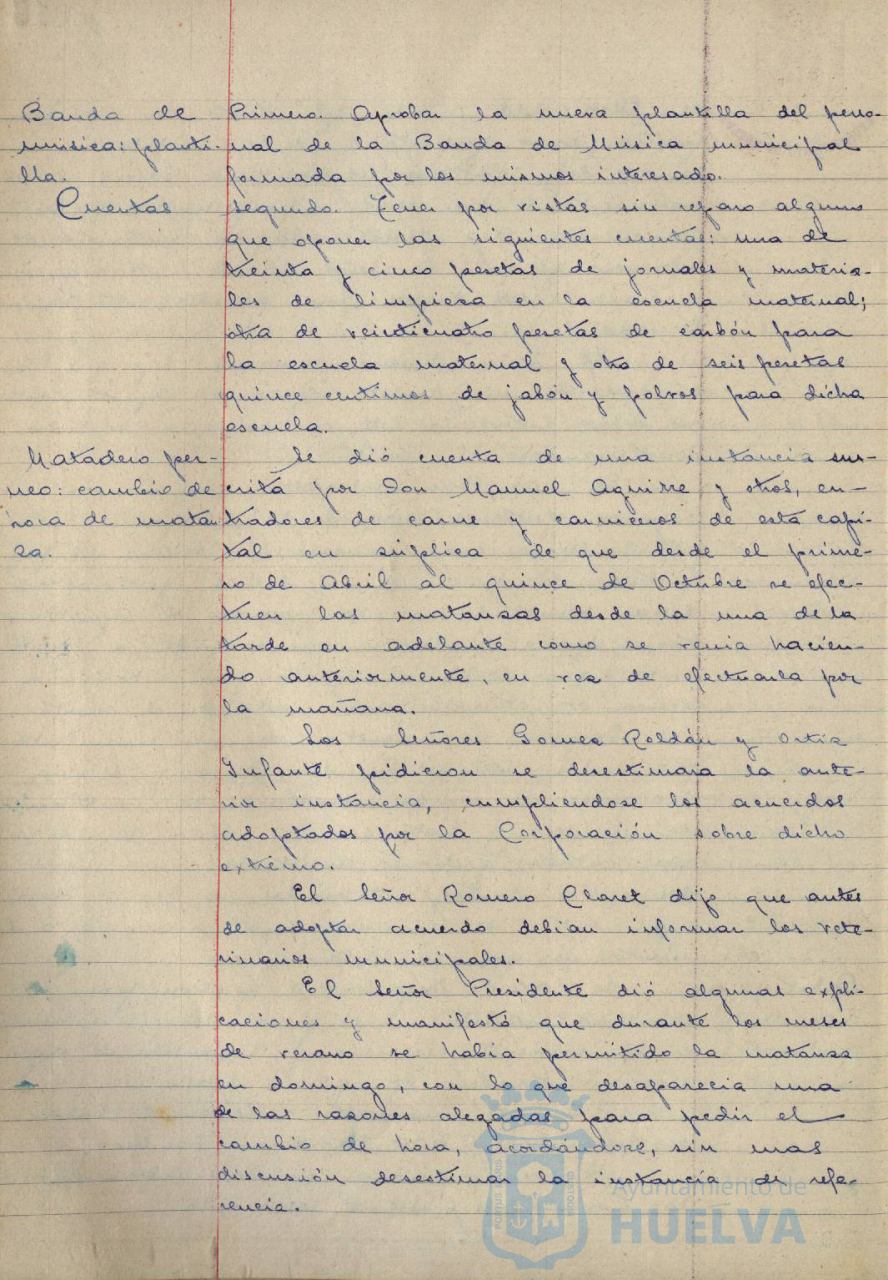 Banda de
música: planti-
lla.
Primero. Aprobar la nueva plantilla del perso-
nal de la Banda de Música municipal
formada por los mismos interesado.
Cuentas
Segundo. Tener por vistas sin reparo alguno
que oponer las siguientes cuentas: una de
treinta y cinco pesetas de jornales y materia-
les de limpieza en la escuela maternal;
otra de veinticuatro pesetas de carbón para
la escuela maternal y otra de seis pesetas
quince centimos de jabón y polvos para dicha
escuela.
Matadero per-
neo: cambio de
hora de matan
za.
Se dió cuenta de una instancia sus-
crita por Don Manuel Aguirre y otros, en-
tradores de carne y carniceros de esta capi-
tal en súplica de que desde el prime-
ro de Abril al quince de Octubre se efec-
tuen las matanzas desde la una de la
tarde en adelante como se venia hacien-
do anteriormente, en vez de efectuarla por
la mañana.
Los Señores Gomez Roldán y Ortiz
Infante pidieron se desestimara la ante-
rior instancia, cumpliendose los acuerdos
adoptados por la Corporación sobre dicho
extremo.
El Señor Romero Claret dijo que antes
de adoptar acuerdo debian informar los vete-
rinarios municipales.
El Señor Presidente dió algunas expli-
caciones y manifestó que durante los meses
de verano se habia permitido la matanza
en domingo, con lo que desaparecia una
de las razones alegadas para pedir el
cambio de hora, acordándose, sin mas
discusión desestimar la instancia de refe-
rencia.
Ayuntamiento de
HUELVA